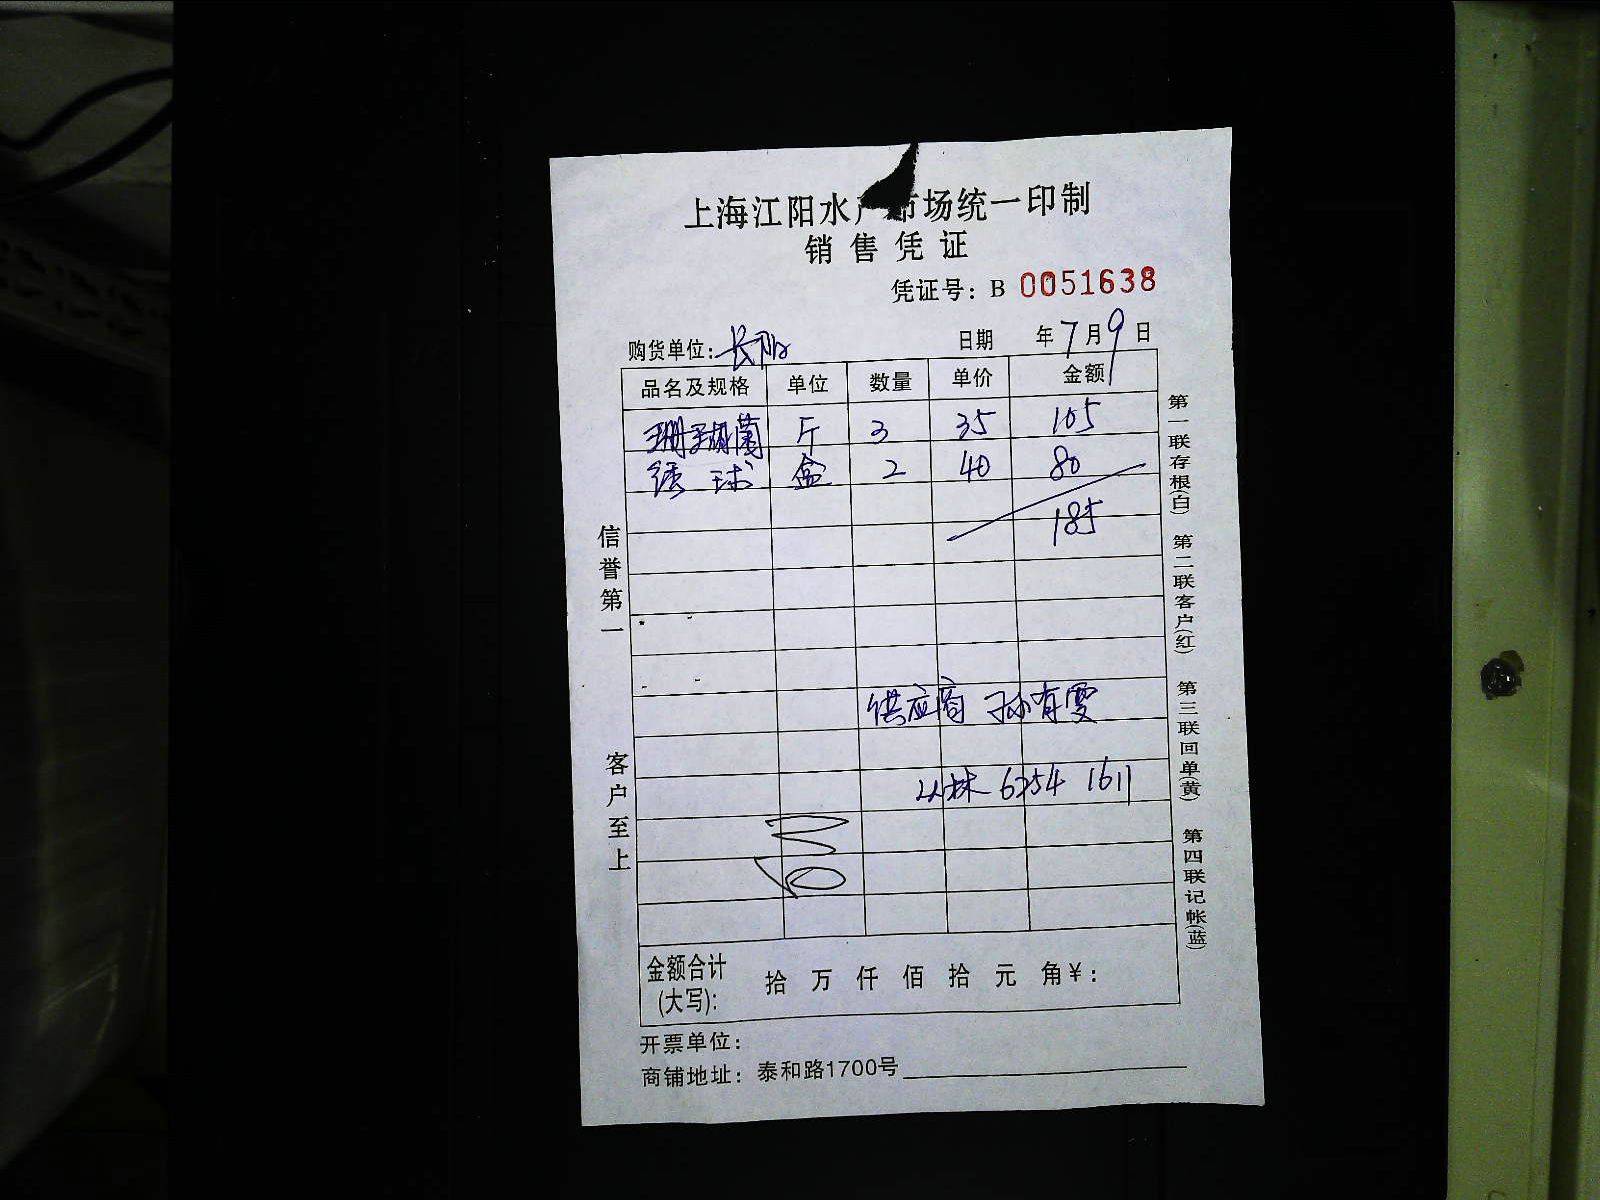 上海江阳水产市场统一印制
销售凭证
凭证号：B 0051638
购货单位：长阳 日期 年7月9日
品名及规格 单位 数量 单价 金额
珊瑚菌 斤 3 35 105
绣球 盒 2 40 80
185
供应商 孙有雯
6254 1611
金额合计 拾 万 仟 佰 拾 元 角￥：
(大写)：
开票单位：
商铺地址：泰和路1700号
信誉第一 客户至上
第一联存根(白) 第二联客户(红) 第三联回单(黄) 第四联记帐(蓝)